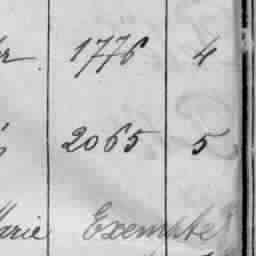 1776 4
2065 5
Marie Exempte